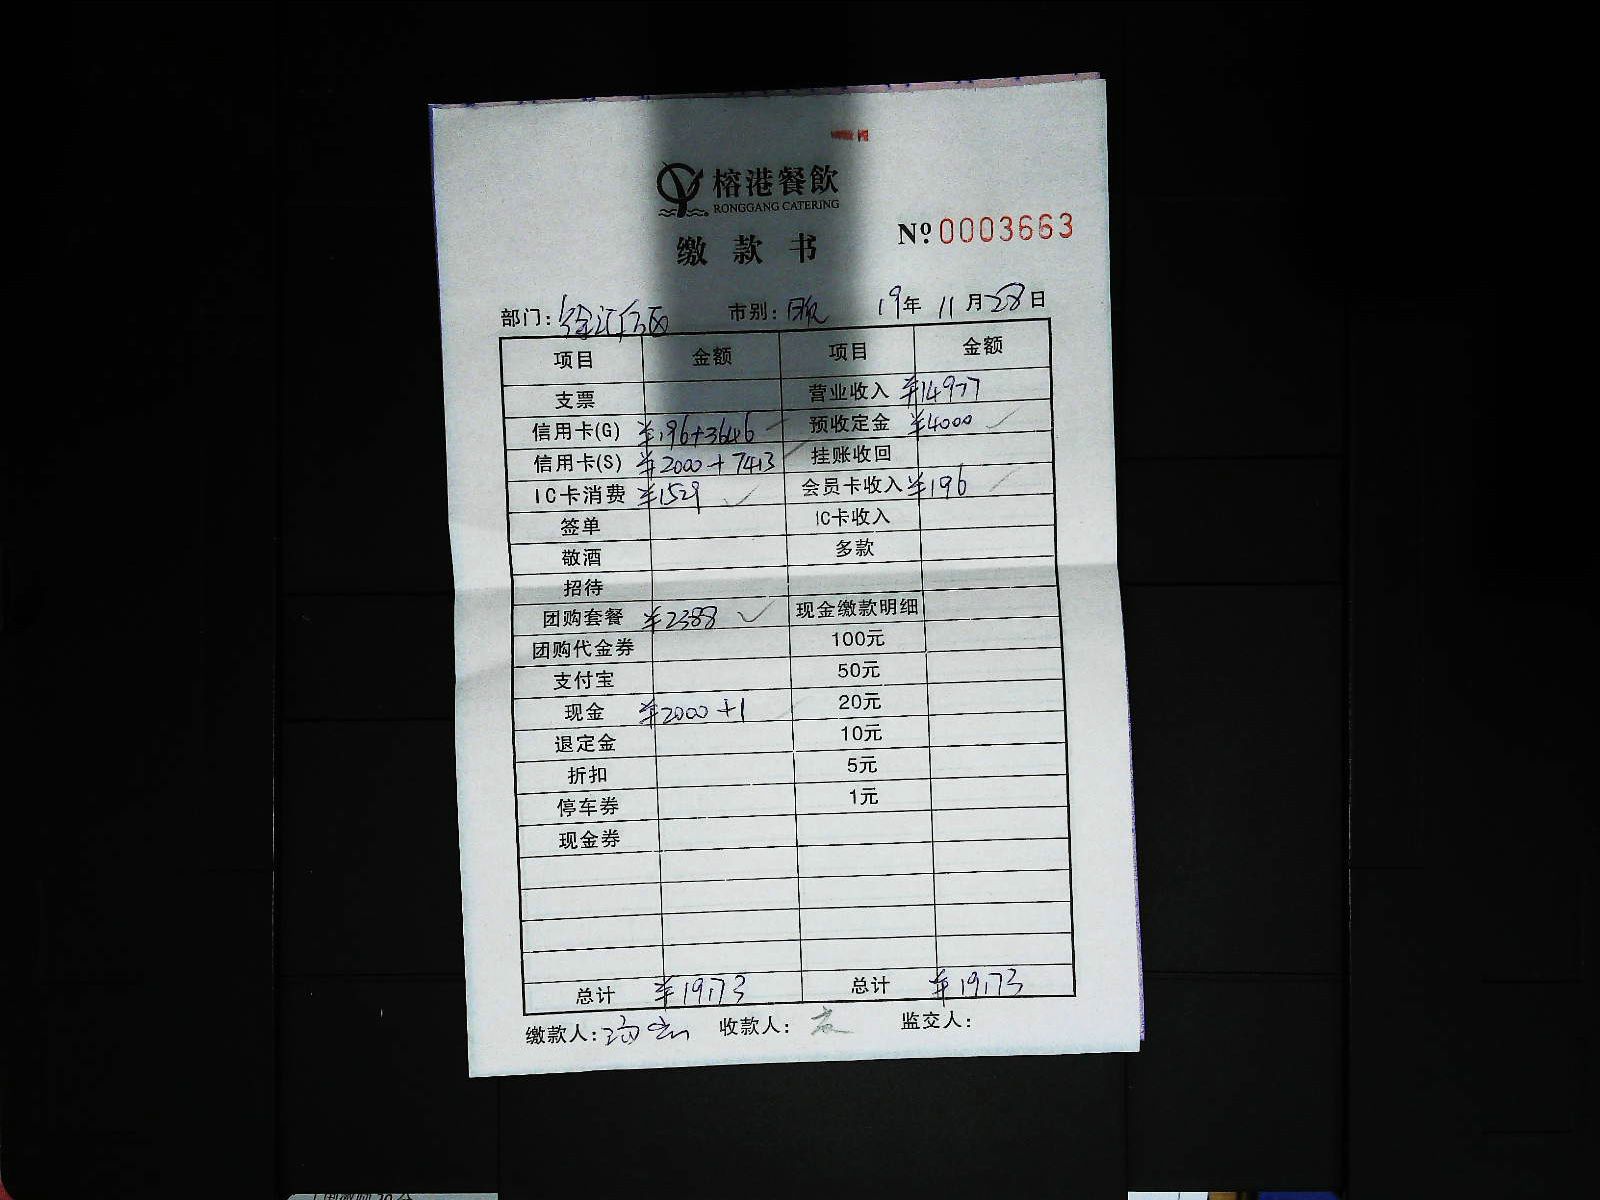 榕港餐飲
RONGGANG CATERING
缴款书
Nº 0003663
部门: 市别: 晚 19年 11月28日
项目 金额 项目 金额
支票 营业收入 ¥14977
信用卡(G) ¥196+3646 预收定金 ¥4000
信用卡(S) ¥2000+7413 挂账收回
IC卡消费 ¥1529 会员卡收入 ¥196
签单 IC卡收入
敬酒 多款
招待
团购套餐 ¥2388 现金缴款明细
团购代金券 100元
支付宝 50元
现金 ¥2000+1 20元
退定金 10元
折扣 5元
停车券 1元
现金券
总计 ¥19173 总计 ¥19173
缴款人: 收款人: 监交人: